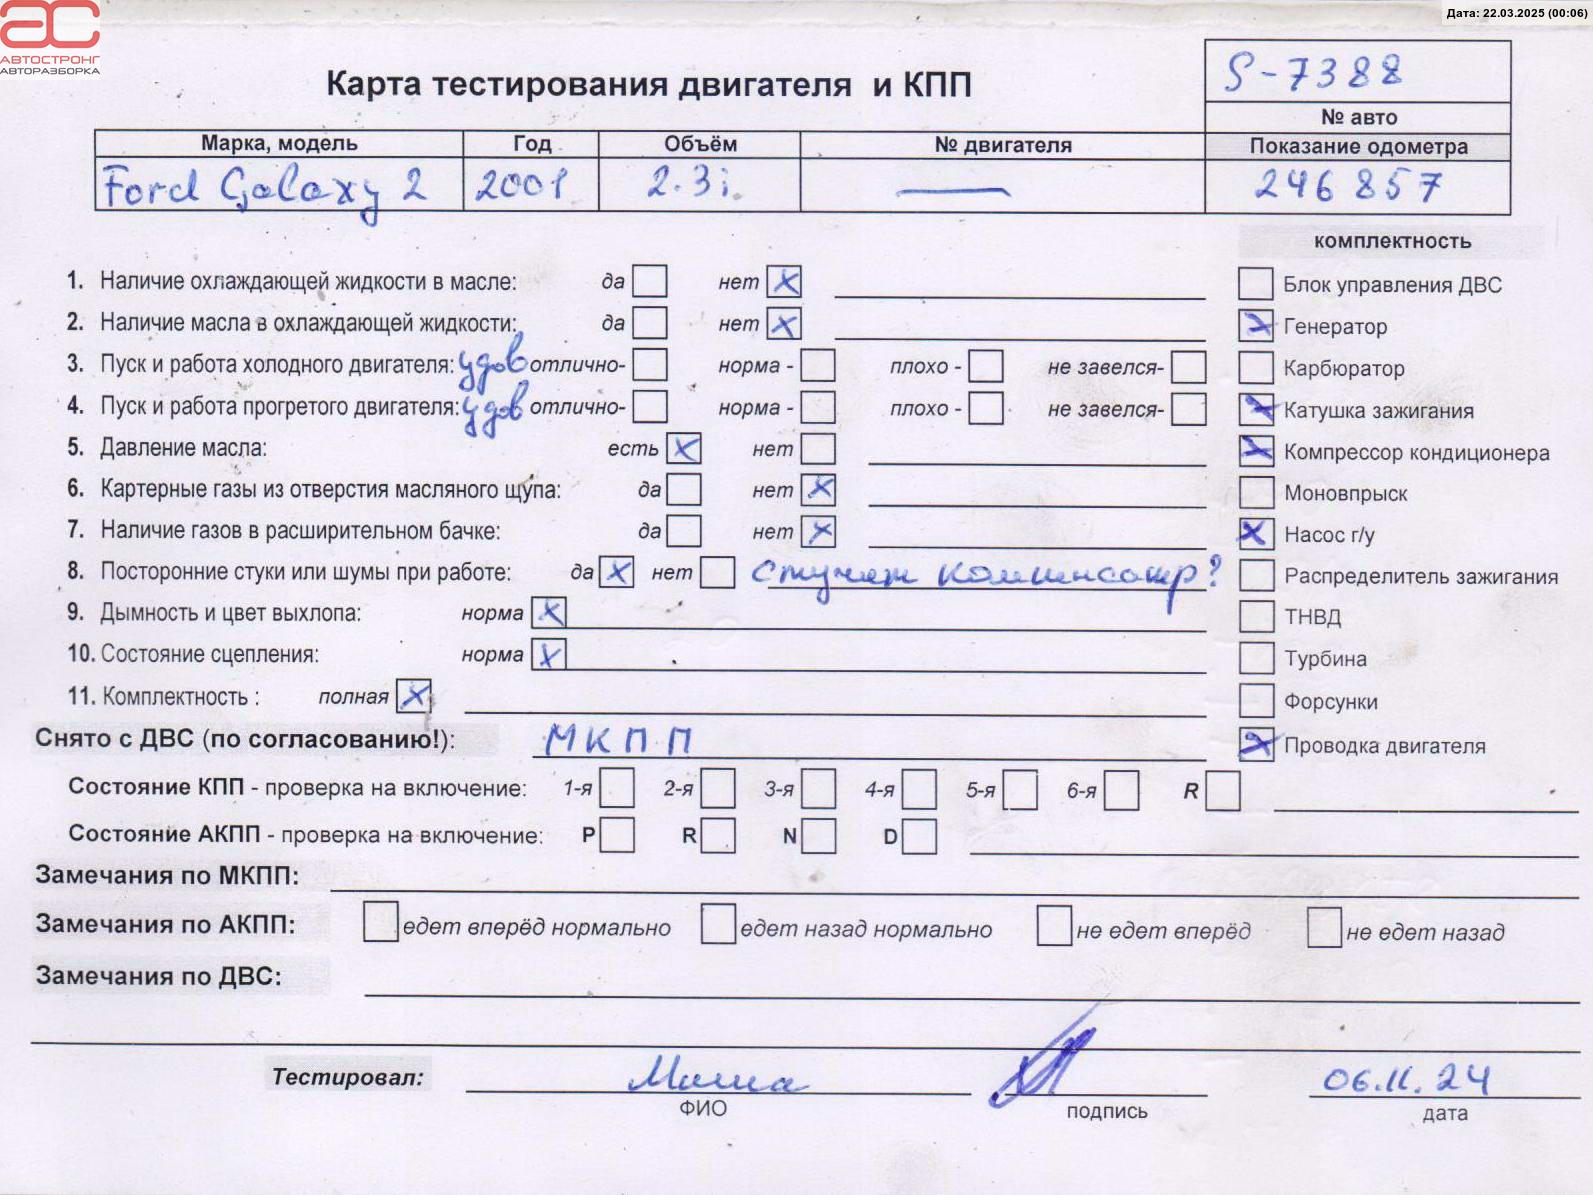 Дата: 22.03.2025 (00:06)
АС
АВТОСТРОНГ
АВТОРАЗБОРКА
Карта тестирования двигателя и КПП
S-7388
№ авто
Марка, модель Год Объём № двигателя Показание одометра
Ford Galaxy 2 2001 2.3i — 246857
комплектность
1. Наличие охлаждающей жидкости в масле: да нет X
Блок управления ДВС
2. Наличие масла в охлаждающей жидкости: да нет X
X Генератор
3. Пуск и работа холодного двигателя: удов отлично- норма - плохо - не завелся-
Карбюратор
4. Пуск и работа прогретого двигателя: удов отлично- норма - плохо - не завелся-
X Катушка зажигания
5. Давление масла: есть X нет
X Компрессор кондиционера
6. Картерные газы из отверстия масляного щупа: да нет X
Моновпрыск
7. Наличие газов в расширительном бачке: да нет X
X Насос г/у
8. Посторонние стуки или шумы при работе: да X нет стучат компенсатр?
Распределитель зажигания
9. Дымность и цвет выхлопа: норма X
ТНВД
10. Состояние сцепления: норма X
Турбина
11. Комплектность : полная X
Форсунки
Снято с ДВС (по согласованию!): МКПП
X Проводка двигателя
Состояние КПП - проверка на включение: 1-я 2-я 3-я 4-я 5-я 6-я R
Состояние АКПП - проверка на включение: P R N D
Замечания по МКПП:
Замечания по АКПП: едет вперёд нормально едет назад нормально не едет вперёд не едет назад
Замечания по ДВС:
Тестировал: Миша 06.11.24
ФИО подпись дата